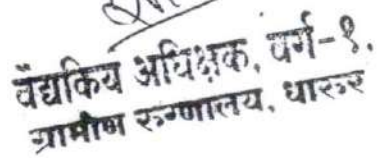 वैद्यकिय अधिक्षक, वर्ग-१.
ग्रामीण रुग्णालय, धारुर